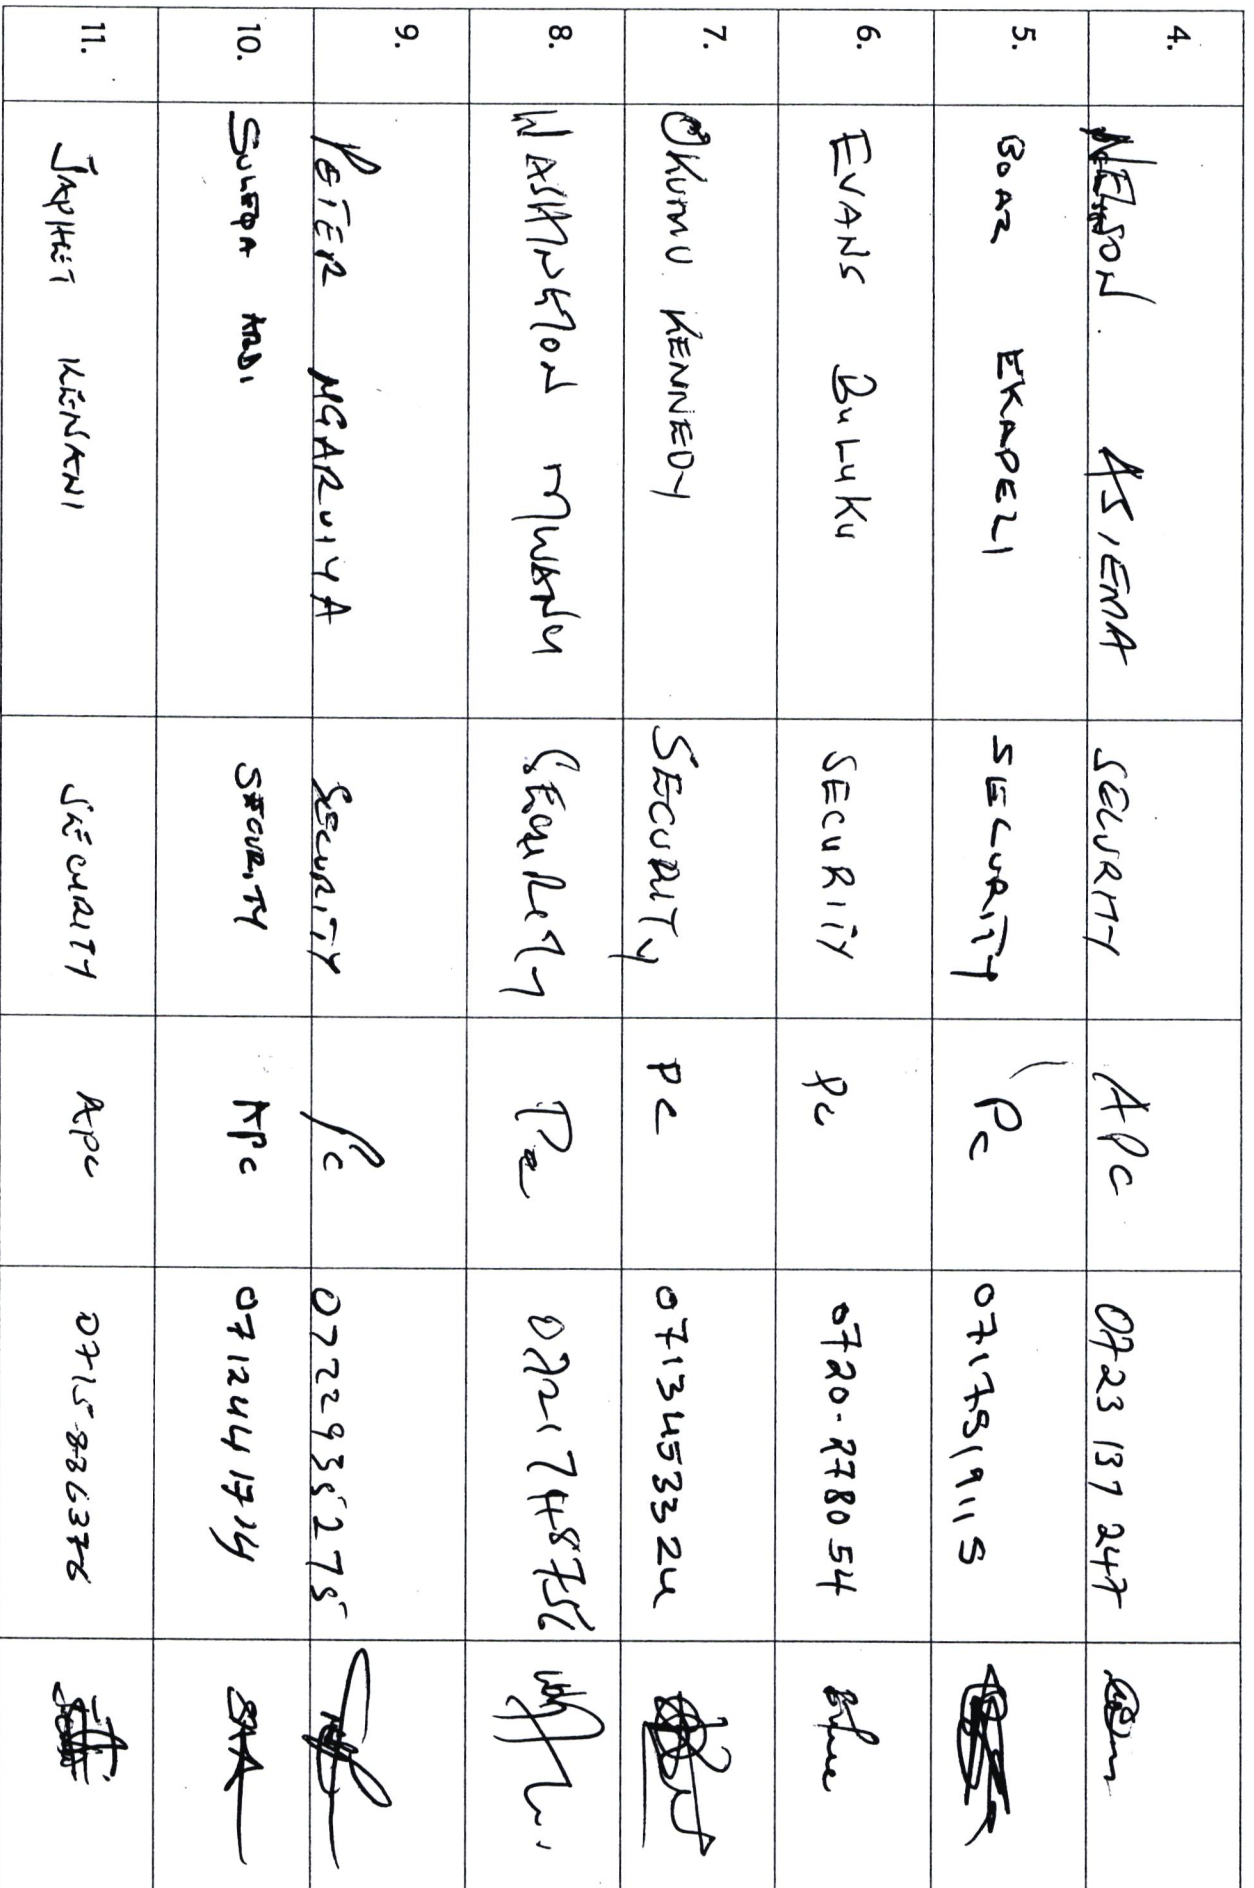 4. NELSON. ASIEMA SECURITY APC 0723 137 247
5. BOAZ EKADELI SECURITY PC 0717519115
6. EVANS BULUKU SECURITY PC 0720-878054
7. OKUMU KENNEDY SECURITY PC 0713453324
8. WASHINGTON MWANU SECURITY PC 0721748756
9. PETER NGARUIYA SECURITY PC 0722935275
10. SULEDA ARDI SECURITY APC 0712441714
11. JAPHET KENANI SECURITY APC 0715-886376